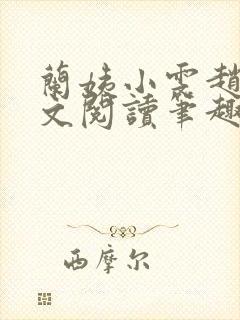 蘭姨小雲趙
文閱讀筆趣
西摩尔